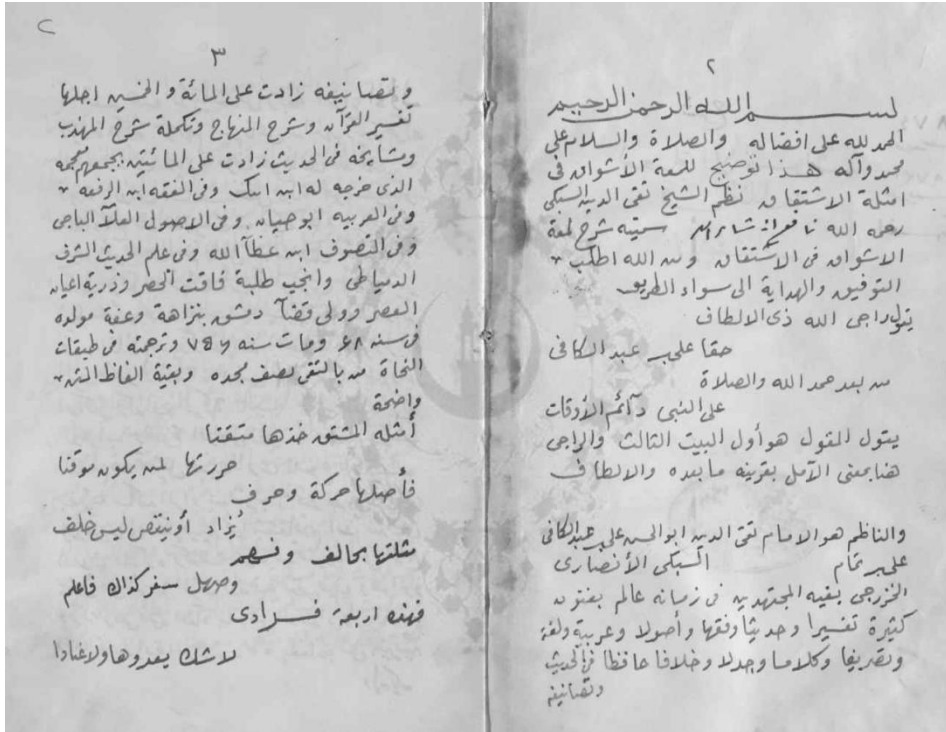 ٢
بسم الله الرحمن الرحيم
الحمد لله على افضاله والصلاة والسلام على
محمد وآله هذا توضيح للمعة الأشواق في
امثلة الاشتقاق نظم الشيخ تقى الدين السبكى
رحمه الله سميته شرح لمعة
الاشواق فى الاشتقاق ومن الله اطلب
التوفيق والهداية الى سواء الطريق
يقول راجى الله ذى الالطاف
حقا على بن عبد الكافى
من بعد حمد الله والصلاة
على النبى دآئم الأوقات
يقول المقول هو أول البيت الثالث والراجى
هنا بمعنى الآمل بقرينه ما بعده والالطاف
والناظم هو الامام تقى الدين ابوالحسن على بن عبد الكافى
على بن تمام السبكى الأنصارى
الخزرجى بقيه المجتهدين فى زمانه عالم بفنون
كثيرة تفسيرا وحديثا وفقها وأصولا وعربية ولغة
وتصريفا وكلاما وجدلا وخلافا حافظا فى الحديث
وتصانيفه
٣
وتصانيفه زادت على المائة والخمسين اجلها
تفسير القرآن وشرح المنهاج وتكملة شرح المهذب
ومشايخه فى الحديث زادت على المائتين يجمعهم معجمه
الذى خرجه له ابن ايبك وفى الفقه ابن الرفعه
وفى العربيه ابوحيان وفى الاصول العلآ الباجى
وفى التصوف ابن عطآ الله وفى علم الحديث الشرف
الدمياطى وانجب طلبة فاقت الحصر وذرية اعيان
العصر وولى قضآ دمشق بنزاهة وعفة مولده
فى سنه ومات سنه ٧٥٦ وترجمته فى طبقات
النحاة وبقية الفاظ المتن
واضحة
أمثله المشتق خذها متقنا
حررتها لمن يكون موقنا
فأصلها حركة وحرف
يزاد أو ينقص ليس خلف
مثلتها بحالف وفهم
وصهل سفر كذاك فاعلم
فهذه اربعة فرادى
لاشك يعدوها ولاعنادا